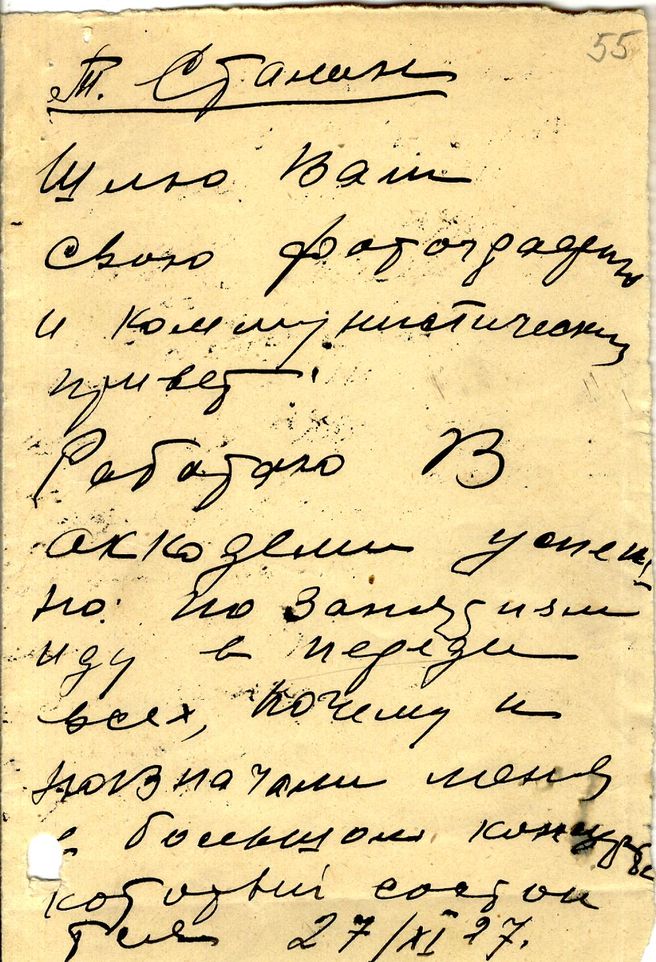 55
Т. Сталин
Шлю Вам
свою фотографию
и коммунистический
привет.
Работаю В
аккадемии успеш
но: по занятиям
иду в переди
всех, почему и
назначали меня
в большом конкурсе
который состои
тся 27/XI 27.